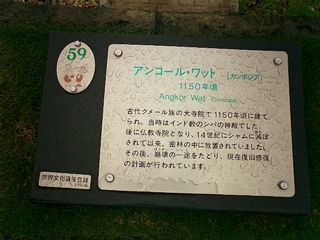 59
アンコール・ワット [カンボジア]
1150年頃
Angkor Wat (Cambodia)
古代クメール族の大寺院で1150年頃に建て
られ、当時はインド教のシバの神殿でした。
後に仏教寺院となり、14世紀にシャムに滅ぼ
されて以来、密林の中に放置されていました。
その後、崩壊の一途をたどり、現在復旧修復
の計画が行われています。
世界文化遺産登録